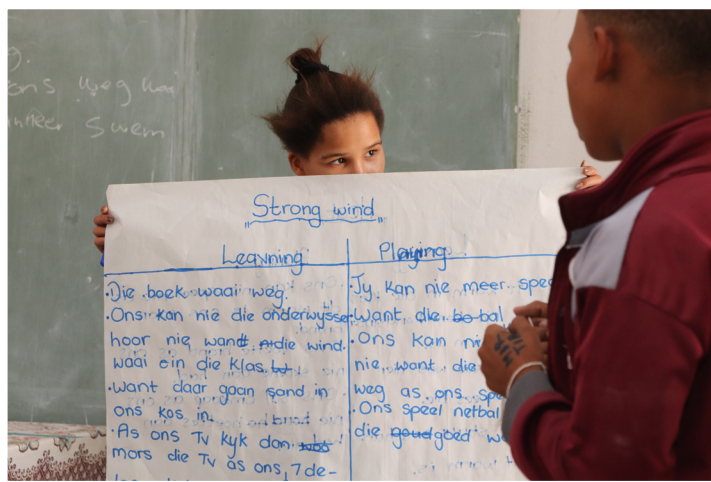 ons weg
Swem
Strong wind
Learning
Playing
•Die boek waai weg.
•Ons kan nie die onderwysser
hoor nie want die wind
waai ein die klas
•Want daar gaan sand in
ons kos in.
•As ons Tv kyk dan
mors die Tv as ons, 7 de-
•Jy kan nie meer spee
want die bo bal
•Ons kan
nie want die
weg as ons spe
•Ons speel netbal
die goud goed